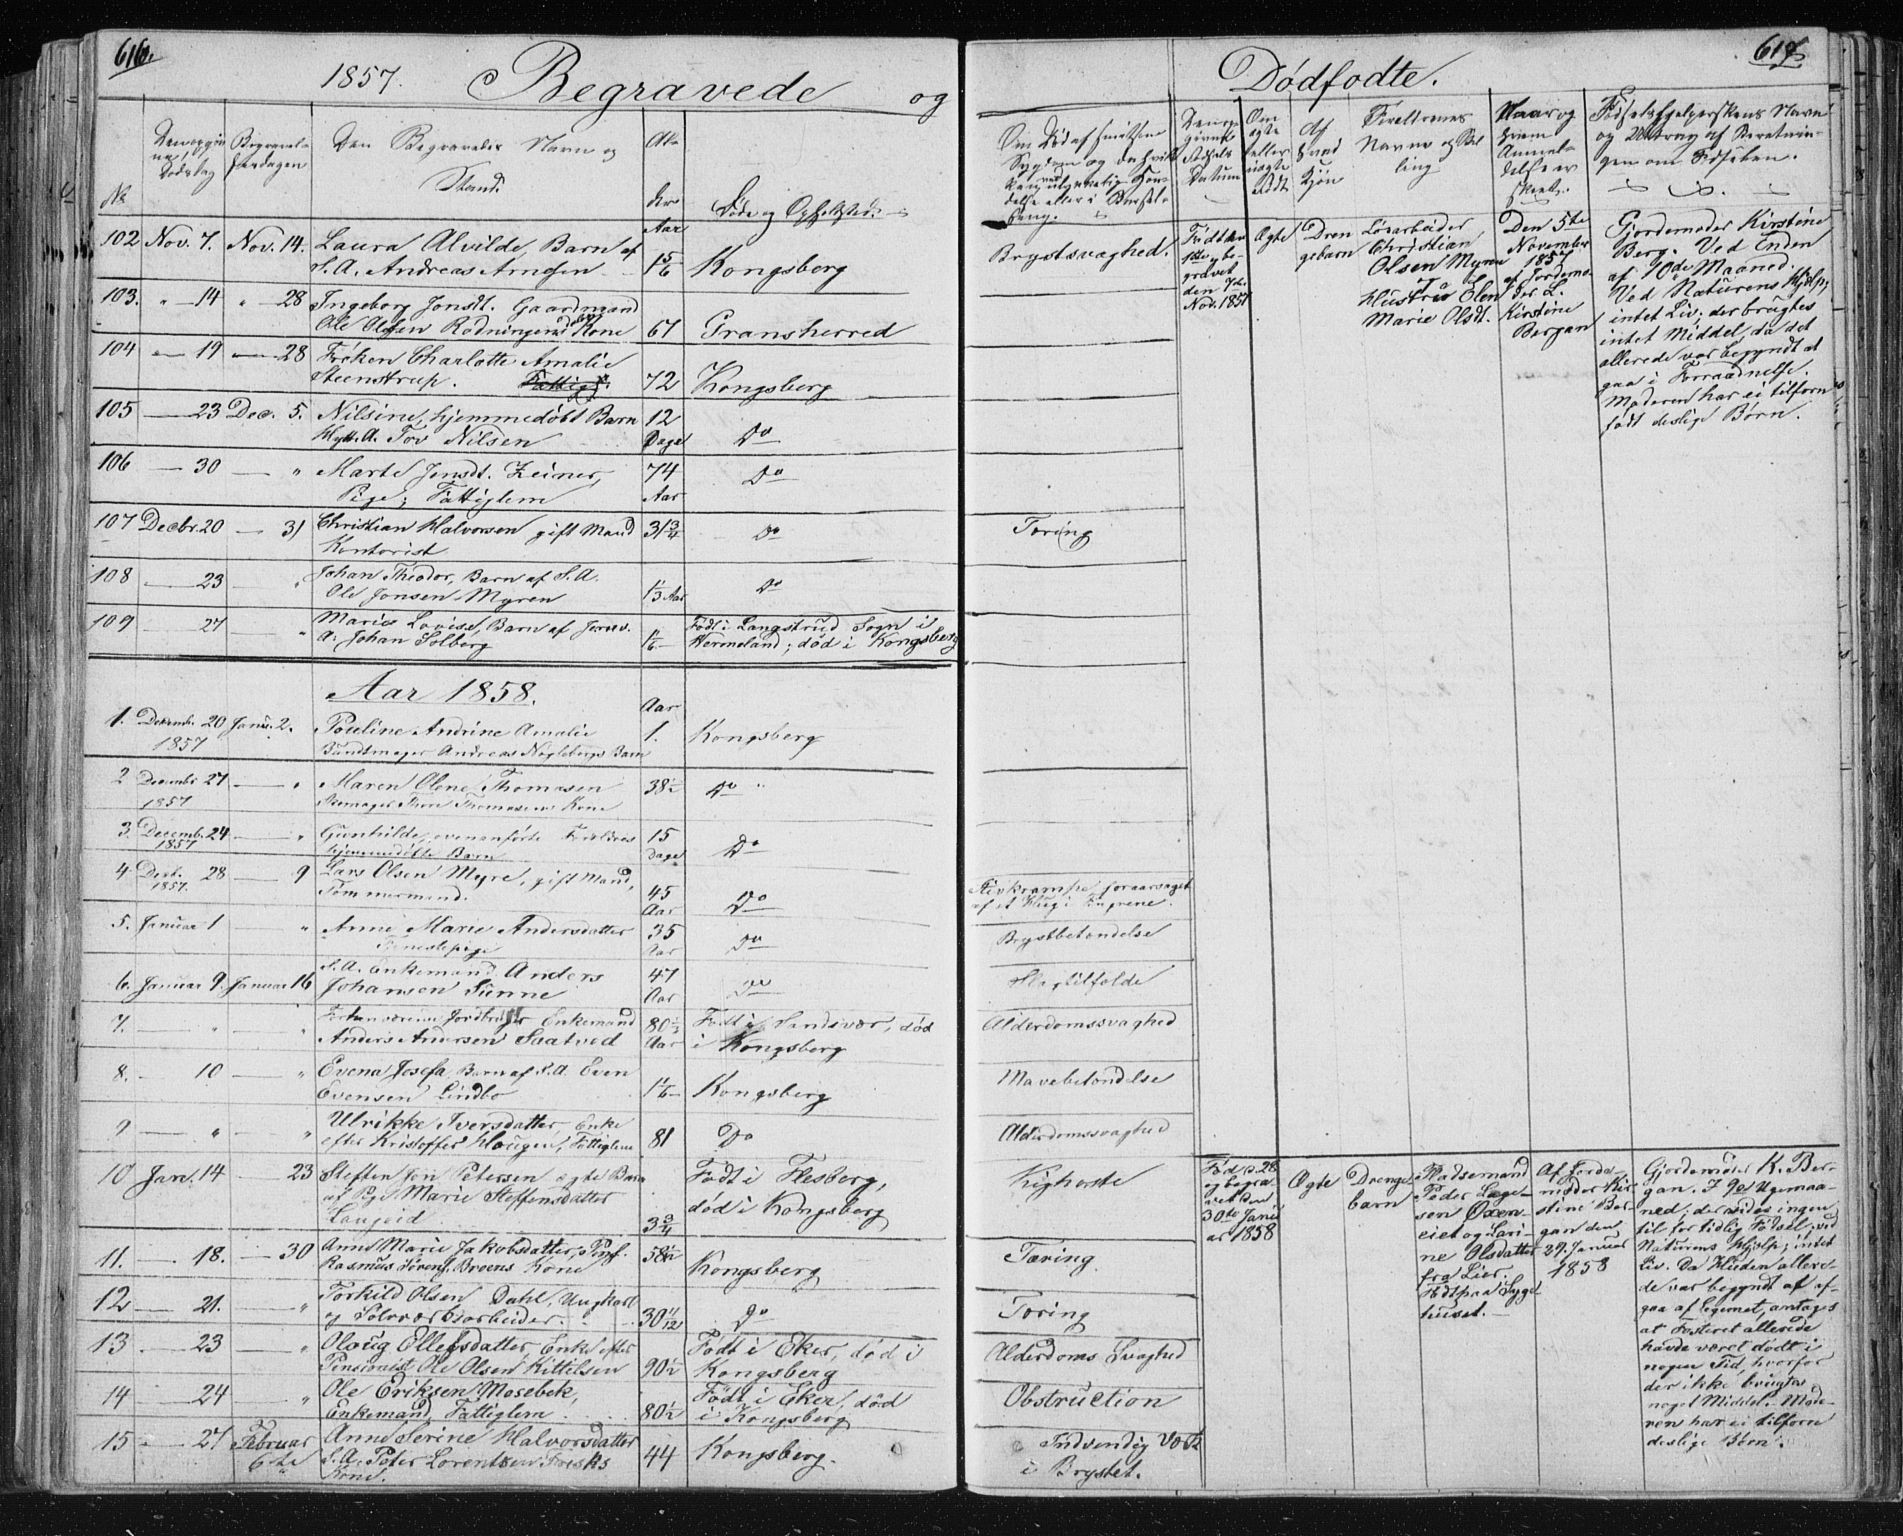 616.
1857. Begravede og
No
Den opgivne Dødsdag
Begravelsesdagen
Den Begravedes Navn og Stand.
Alder
Aar
Døde og Opholdsted.
102 Nov. 7. Nov. 14. Laura Alvilde, Barn af
S.A. Andreas Arnesen 1 5/6 Kongsberg
103. " 14 " 28 Ingeborg Jonsdt. Gaardmand
Ole Olsen Rodningens Kone 67 Gransherred
104 — 19 — 28 Frøken Charlotte Amalie
Steenstrup. 72 Kongsberg
105 — 23 Dec. 5. Nilsine, hjemmedøbt Barn 12
Hytt.A. Tov Nilsen Dage Do
106 — 30 — " Marte Jensdt. Zeiner, 74
Pige; Fattiglem Aar Do
107 Decbr. 20 — 31 Christian Halvorsen gift Mand 31 3/4 Do
Kontorist
108 — 23 — " Johan Theodor, Barn af S.A.
Ole Jonsen Myren 1/3 Aar Do
109 — 27 — " Marie Lovise, Barn af Jernv. Født i Langstrud Sogn i
A. Johan Solberg Vermeland; død i Kongsberg
Aar 1858.
Aar
1. Decemb. 20 Janu. 2. Pouline Andrine Amalie 1. Kongsberg
1857 Bundtmager Andreas Nøglebergs Barn
2 Decembr 27 — " Maren Olene Thomasen 38 1/2 Do "
1857 Thomasens Kone
3. Decemb. 24 — " Gunhilde, ovenanførte Forældres 15
1857 hjemmedøbte Barn Dage Do
4 Decb. 28 — 9 Lars Olsen Myre, gift Mand, 45
1857. Tømmermand. Aar Do
5. Januar 1 — " Anne Marie Andersdatter 35
Tjenestepige Aar Do
6. Januar 9. Januar 16 S.A. Enkemand Anders 47
Johansen Sunne Aar Do
7. — " — " Forhenværende Jordbruger Enkemand 80 1/2 Født i Sandsvær, død
Anders Andersen Saatved Aar i Kongsberg
8. — 10 — " Evena Josefa, Barn af S.A. Even
Evensen Lindbo 1 1/6 Kongsberg
9 — " — " Ulrikke Iversdatter, Enke
efter Kristoffer Hougen, Fattiglem 81 Do
10 Jan. 14 — 23 Steffen Jon Petersen ægte Barn Født i Flesberg,
af Pige Marie Steffensdatter død i Kongsberg
Laugeid 3 3/4
11. — 18. — 30 Anne Marie Jakobsdatter, Pens. 58 1/2
Rasmus Sørens. Broens Kone Kongsberg
12 — 21. — " Torkild Olsen Dahl, Ungkarl
og Sølvverksarbeider. 30 11/12 Do
13 — 23 — " Olaug Ellefsdatter, Enke efter Født i Eker, død i
Pensionist Ole Olsen Kittelsen 90 1/2 Kongsberg
14 — 24 — " Ole Eriksen Mosebek, Født i Eker, død
Enkemand, Fattiglem 80 1/2 i Kongsberg
15 — 27 Februar Anne Serine Halvorsdatter
6te S.A. Peter Lorentzen Frisks 44 Kongsberg.
Kone.
617.
Dødfødte.
Om Død af smitsom
Sygdom og
delse eller i Barsel-
seng.
Den opgivne Fødsels Datum
Om ægte eller uægte Født
Af hvad Kjøn
Forældrenes
Navne og Stilling
Naar og
hvem
Anmeldelse er
skeet.
Fødselshjelperskens Navn
og Udtrag af Beretningen
om Fødselen.
Brystsvaghed.
Født den
1ste, begravet
den 7de
Nov. 1857
Ægte
Drengebarn
Løsarbeider
Christian
Olsen Myren
Hustru Elen
Marie Olsdt.
Den 5te
November
1857
af Jordemoder
L.
Kirstine
Bergan
Gjordemoder Kirstine
Berg. Ved Enden
af 10de Maaned.
Ved Naturens Hjelp;
intet Liv; der brugtes
intet Middel, da det
allerede var begyndt at
gaa i Forraadnelse.
Moderen har ei tilforn
født deslige Børn.
Tæring
Stivkrampe, foraarsaget
af et Hug i Fingrene.
Brystbetændelse
Slagtilfælde
Alderdomssvaghed
Mavebetændelse
Alderdomssvaghed
Kighoste
Født d. 28
og begravet
den
30te Janu
ar 1858
Ægte
Drenge
barn
Pladsemand
Peder Lage-
sen Oxen-
eiet og Lari-
ne Olsdatter
fra Lier.
Født paa Syge
huset.
Af Jorde-
moder Kir-
stine Ber-
gan den
29. Januar
1858
Gjordemoder K. Ber-
gan. I 9de Ugemaa-
ned; der vides ingen
til for tidlig Fødsel; ved
Naturens Hjelp; intet
Liv. Da Huden allere-
de var begyndt at af-
gaa af Legemet, antages
at Fosteret allerede
havde været dødt i
nogen Tid, hvorfor
der ikke brugtes
noget Middel. Mode-
ren har ei tilforn
deslige Børn.
Tæring.
Tæring
Alderdoms Svaghed
Obstruction
Indvendig Værk
i Brystet.